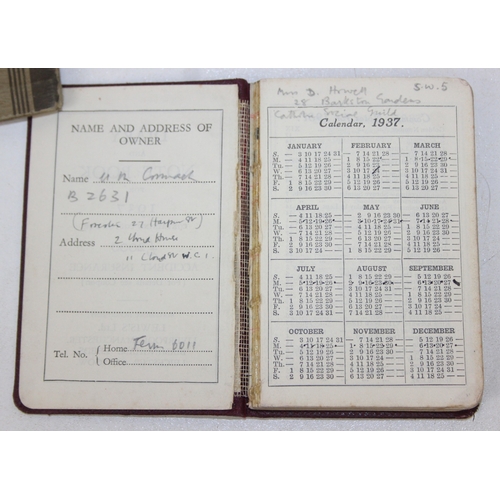 NAME AND ADDRESS OF
OWNER
Name
B 2631
Address 2
W.C.1
Tel. No. { Home Fern 6011
Office
Miss D. Howell S.W.5
28 Barkston Gardens
Catholic Social Guild
Calendar, 1937.
JANUARY FEBRUARY MARCH
S. — 3 10 17 24 31 — 7 14 21 28 — — 7 14 21 28 —
M. — 4 11 18 25 — 1 8 15 22 — — 1 8 15 22 29 —
Tu. — 5 12 19 26 — 2 9 16 23 — — 2 9 16 23 30 —
W. — 6 13 20 27 — 3 10 17 24 — — 3 10 17 24 31 —
Th. — 7 14 21 28 — 4 11 18 25 — — 4 11 18 25 — —
F. 1 8 15 22 29 — 5 12 19 26 — — 5 12 19 26 — —
S. 2 9 16 23 30 — 6 13 20 27 — — 6 13 20 27 — —
APRIL MAY JUNE
S. — 4 11 18 25 — — 2 9 16 23 30 — 6 13 20 27 —
M. — 5 12 19 26 — — 3 10 17 24 31 — 7 14 21 28 —
Tu. — 6 13 20 27 — — 4 11 18 25 — 1 8 15 22 29 —
W. — 7 14 21 28 — — 5 12 19 26 — 2 9 16 23 30 —
Th. 1 8 15 22 29 — — 6 13 20 27 — 3 10 17 24 — —
F. 2 9 16 23 30 — — 7 14 21 28 — 4 11 18 25 — —
S. 3 10 17 24 — — 1 8 15 22 29 — 5 12 19 26 — —
JULY AUGUST SEPTEMBER
S. — 4 11 18 25 — 1 8 15 22 29 — — 5 12 19 26 —
M. — 5 12 19 26 — 2 9 16 23 30 — — 6 13 20 27 —
Tu. — 6 13 20 27 — 3 10 17 24 31 — — 7 14 21 28 —
W. — 7 14 21 28 — 4 11 18 25 — — 1 8 15 22 29 —
Th. 1 8 15 22 29 — 5 12 19 26 — — 2 9 16 23 30 —
F. 2 9 16 23 30 — 6 13 20 27 — — 3 10 17 24 — —
S. 3 10 17 24 31 — 7 14 21 28 — — 4 11 18 25 — —
OCTOBER NOVEMBER DECEMBER
S. — 3 10 17 24 31 — 7 14 21 28 — — 5 12 19 26 —
M. — 4 11 18 25 — 1 8 15 22 29 — — 6 13 20 27 —
Tu. — 5 12 19 26 — 2 9 16 23 30 — — 7 14 21 28 —
W. — 6 13 20 27 — 3 10 17 24 — — 1 8 15 22 29 —
Th. — 7 14 21 28 — 4 11 18 25 — — 2 9 16 23 30 —
F. 1 8 15 22 29 — 5 12 19 26 — — 3 10 17 24 31 —
S. 2 9 16 23 30 — 6 13 20 27 — — 4 11 18 25 — —